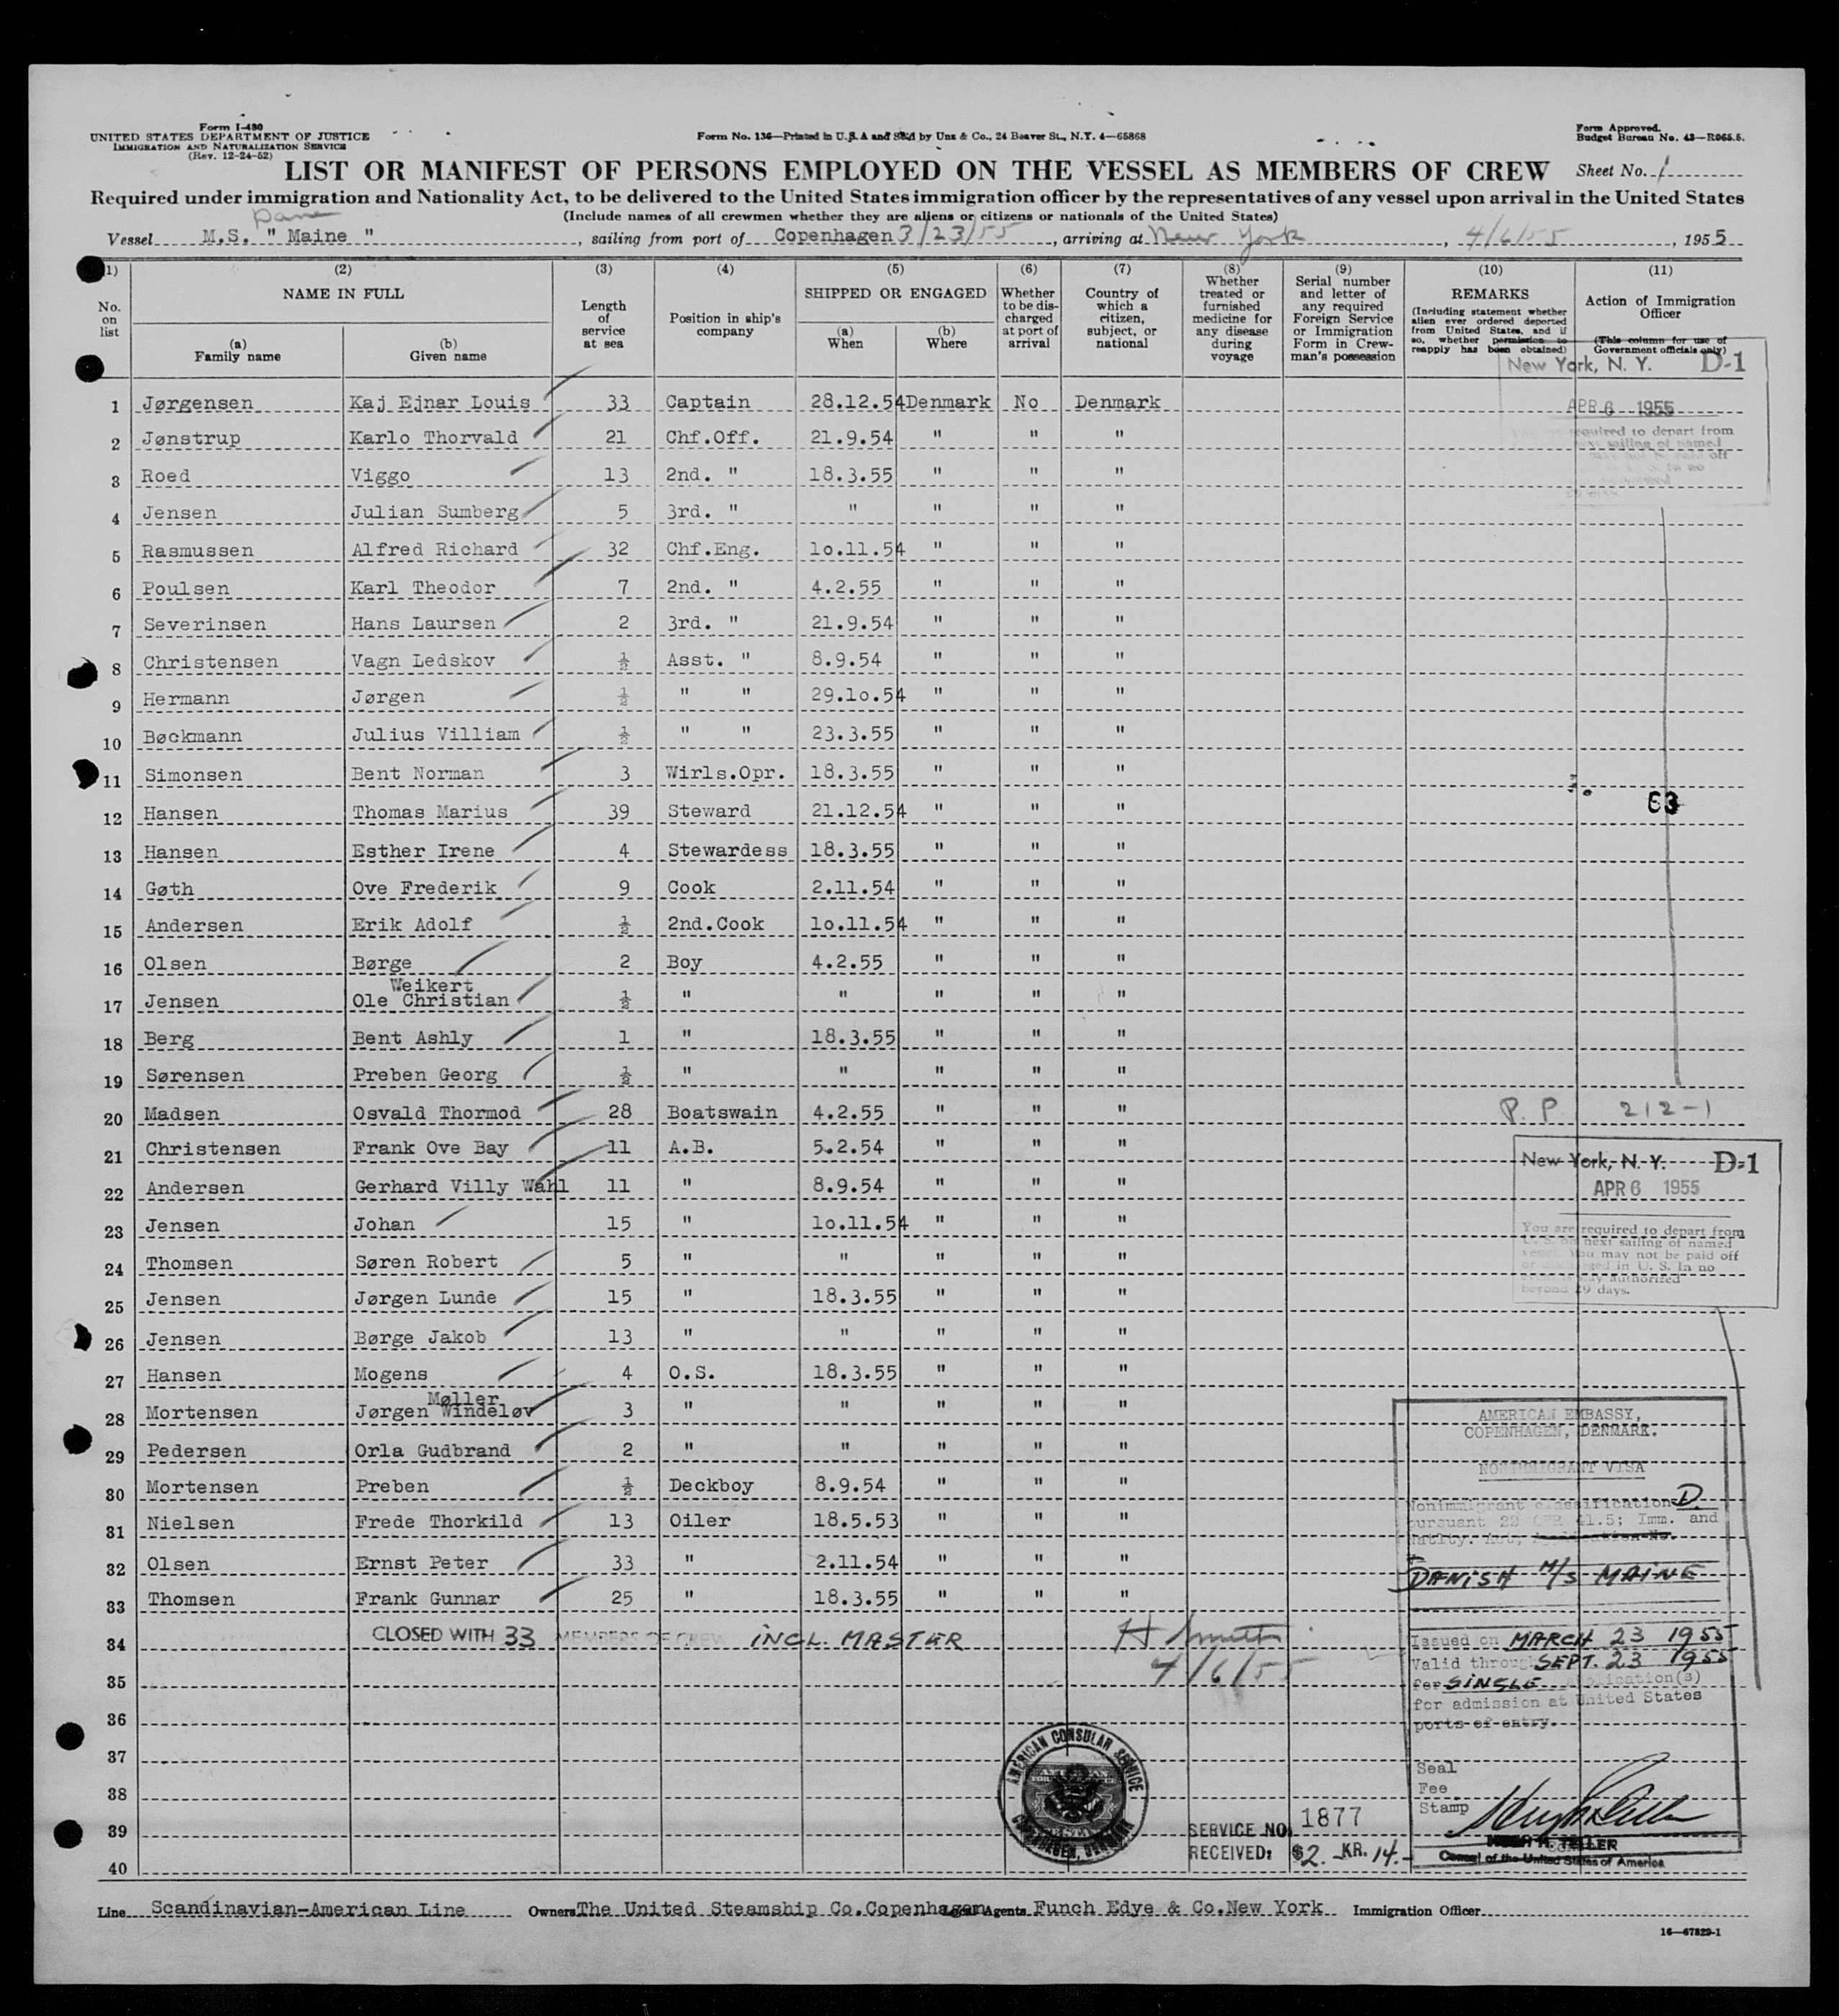 Form I-480
UNITED STATES DEPARTMENT OF JUSTICE
IMMIGRATION AND NATURALIZATION SERVICE
(Rev. 12-24-52)
Form No. 136—Printed in U.S.A and Sold by Unz & Co., 24 Beaver St., N.Y. 4—65868
Form Approved.
Budget Bureau No. 43—R065.5.
LIST OR MANIFEST OF PERSONS EMPLOYED ON THE VESSEL AS MEMBERS OF CREW
Sheet No. 1
Required under immigration and Nationality Act, to be delivered to the United States immigration officer by the representatives of any vessel upon arrival in the United States
(Include names of all crewmen whether they are aliens or citizens or nationals of the United States)
Dane
Vessel M.S. " Maine " , sailing from port of Copenhagen 3/23/55 , arriving at New York , 4/6/55 , 1955
(1) No. on list
(2) NAME IN FULL (a) Family name (b) Given name
(3) Length of service at sea
(4) Position in ship's company
(5) SHIPPED OR ENGAGED (a) When (b) Where
(6) Whether to be discharged at port of arrival
(7) Country of which a citizen, subject, or national
(8) Whether treated or furnished medicine for any disease during voyage
(9) Serial number and letter of any required Foreign Service or Immigration Form in Crewman's possession
(10) REMARKS (Including statement whether alien ever ordered deported from United States, and if so, whether permission to reapply has been obtained)
(11) Action of Immigration Officer (This column for use of Government officials only)
New York, N. Y. D-1
1 Jørgensen Kaj Ejnar Louis 33 Captain 28.12.54 Denmark No Denmark
APR 6 1955
2 Jønstrup Karlo Thorvald 21 Chf.Off. 21.9.54 " " "
required to depart from
next sailing of named
3 Roed Viggo 13 2nd. " 18.3.55 " " "
4 Jensen Julian Sumberg 5 3rd. " " " " "
5 Rasmussen Alfred Richard 32 Chf.Eng. 1o.11.54 " " "
6 Poulsen Karl Theodor 7 2nd. " 4.2.55 " " "
7 Severinsen Hans Laursen 2 3rd. " 21.9.54 " " "
8 Christensen Vagn Ledskov ½ Asst. " 8.9.54 " " "
9 Hermann Jørgen ½ " " 29.1o.54 " " "
10 Bøckmann Julius Villiam ½ " " 23.3.55 " " "
11 Simonsen Bent Norman 3 Wirls.Opr. 18.3.55 " " "
12 Hansen Thomas Marius 39 Steward 21.12.54 " " "
13 Hansen Esther Irene 4 Stewardess 18.3.55 " " "
14 Gøth Ove Frederik 9 Cook 2.11.54 " " "
15 Andersen Erik Adolf ½ 2nd.Cook 1o.11.54 " " "
16 Olsen Børge 2 Boy 4.2.55 " " "
Weikert
17 Jensen Ole Christian ½ " " " " "
18 Berg Bent Ashly 1 " 18.3.55 " " "
19 Sørensen Preben Georg ½ " " " " "
20 Madsen Osvald Thormod 28 Boatswain 4.2.55 " " " P.P 212-1
21 Christensen Frank Ove Bay 11 A.B. 5.2.54 " " "
New York, N. Y. D-1
22 Andersen Gerhard Villy Wahl 11 " 8.9.54 " " "
APR 6 1955
23 Jensen Johan 15 " 1o.11.54 " " "
You are required to depart from
U. S. on next sailing of named
24 Thomsen Søren Robert 5 " " " " "
vessel. You may not be paid off
or discharged in U. S. In no
25 Jensen Jørgen Lunde 15 " 18.3.55 " " "
beyond 29 days.
26 Jensen Børge Jakob 13 " " " " "
27 Hansen Mogens 4 O.S. 18.3.55 " " "
Møller
28 Mortensen Jørgen Windeløv 3 " " " " "
29 Pedersen Orla Gudbrand 2 " " " " "
30 Mortensen Preben ½ Deckboy 8.9.54 " " "
31 Nielsen Frede Thorkild 13 Oiler 18.5.53 " " "
32 Olsen Ernst Peter 33 " 2.11.54 " " "
33 Thomsen Frank Gunnar 25 " 18.3.55 " " "
34 CLOSED WITH 33 MEMBERS OF CREW INCL. MASTER H Smith
4/6/55
35
36
37
38
39
40
AMERICAN EMBASSY,
COPENHAGEN, DENMARK.
NONIMMIGRANT VISA
Nonimmigrant classification D.
pursuant 22 CFR 41.5; Imm. and
Natlty. Act, Application No.
DANISH M/S MAINE
Issued on MARCH 23 1955
Valid through SEPT. 23 1955
for SINGLE application(s)
for admission at United States
ports of entry.
Seal
Fee
Stamp
HUGH H. TELLER
Consul of the United States of America
AMERICAN CONSULAR SERVICE
COPENHAGEN, DENMARK
SERVICE NO. 1877
RECEIVED: $2.- KR. 14.-
Line Scandinavian-American Line Owners The United Steamship Co.Copenhagen Agents Funch Edye & Co.New York Immigration Officer
16—67829-1